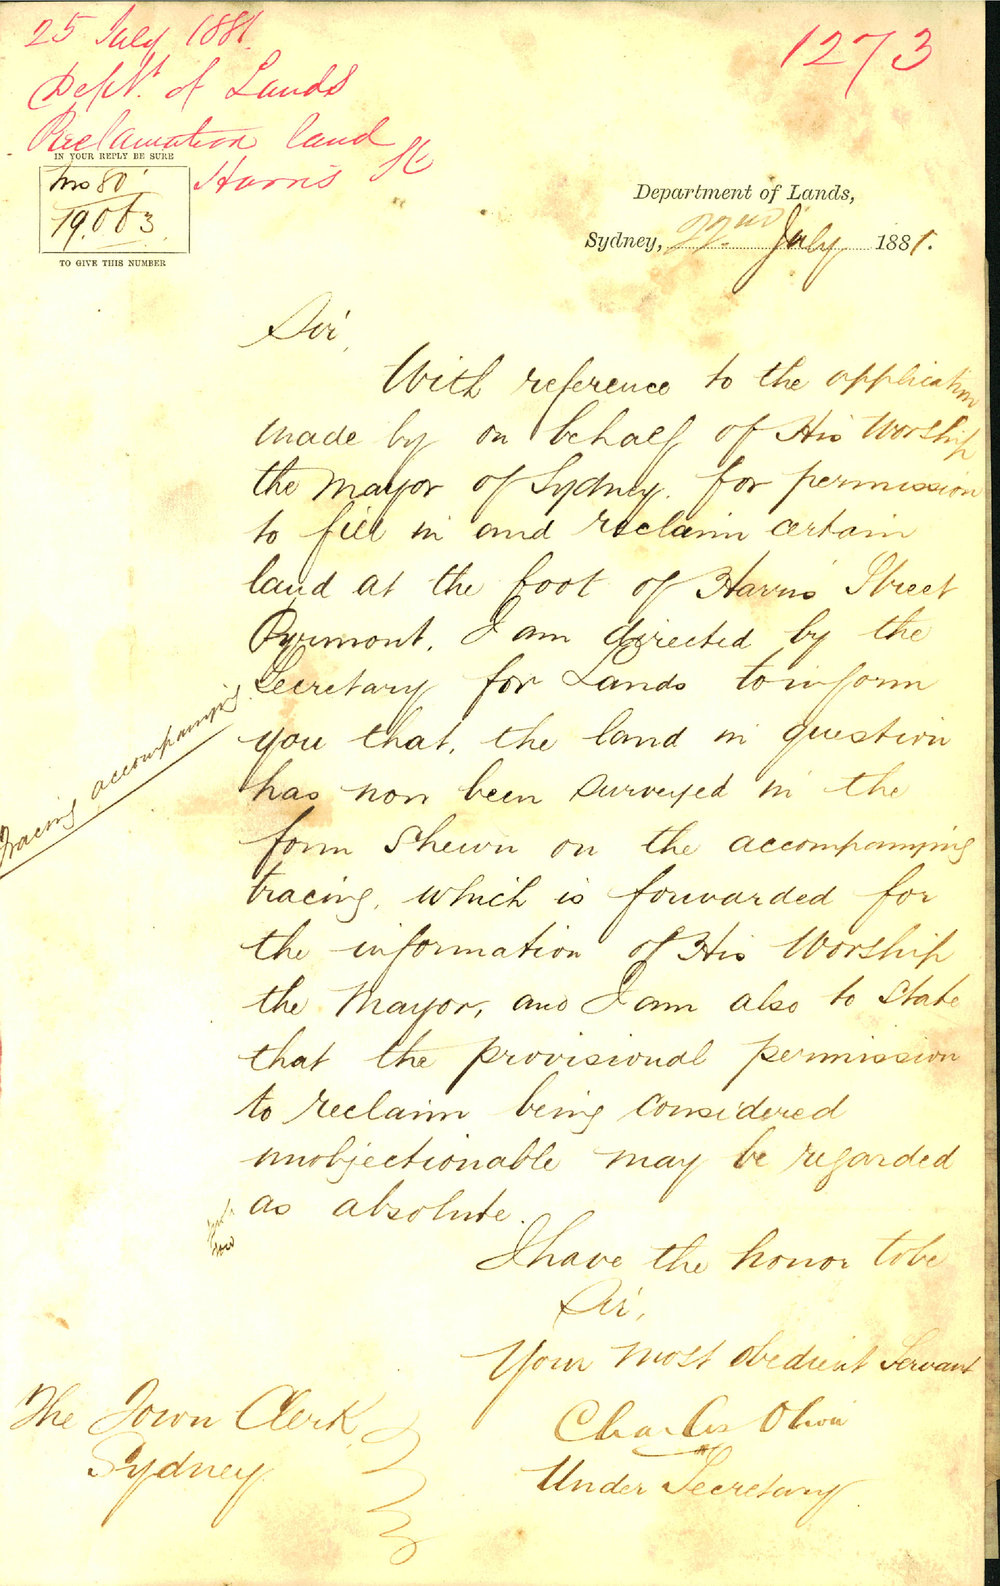 25 July 1881.
1273
Dept. of Lands
Reclamation land
Harris St
IN YOUR REPLY BE SURE
TO GIVE THIS NUMBER
Department of Lands,
Sydney, 22nd July 1881.
Sir,
With reference to the application
made by on behalf of His Worship
the Mayor of Sydney. for permission
to fill in and reclaim certain
land at the foot of Harris Street
Pyrmont. I am directed by the
Secretary for Lands to inform
you that, the land in question
has now been surveyed in the
form shewn on the accompanying
tracing, which is forwarded for
the information of His Worship
the Mayor, and I am also to state
that the provisional permission
to reclaim being considered
unobjectionable may be regarded
as absolute.
Tracing accompanying
I have the honor to be
Sir,
Your most obedient Servant
Charles Oliver
Under Secretary.
The Town Clerk
Sydney